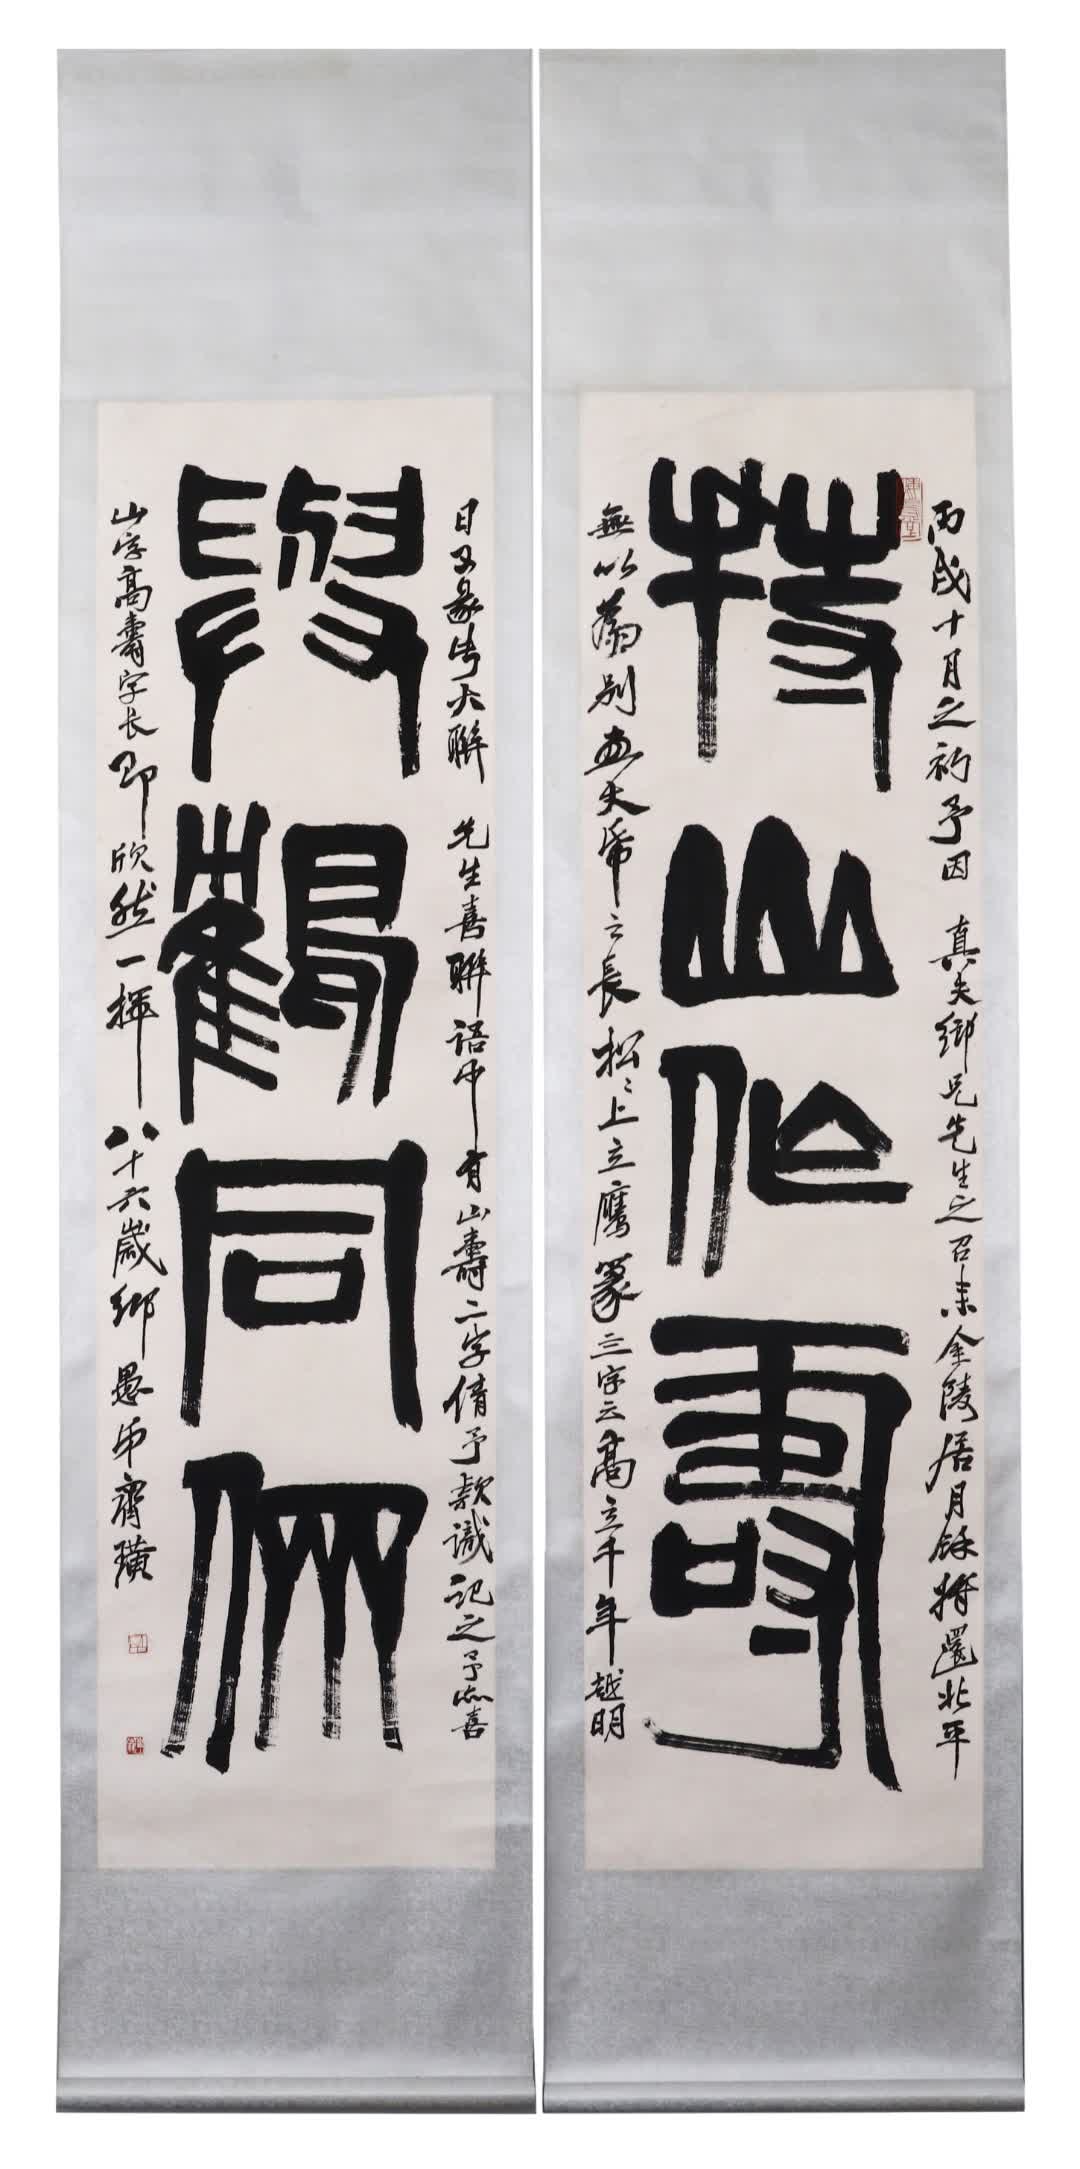 丙戌十月之初予因 真夫鄉兄先生之召來金陵居月餘將還北平
持山作壽
無以為別畫大幅之長松〻上立鷹篆三字云高立千年越明
日又篆此大聯 先生喜聯語中有山壽二字倩予款識記之予亦喜
與鶴同儕
山字高壽字長即欣然一揮 八十六歲鄉愚弟齊璜